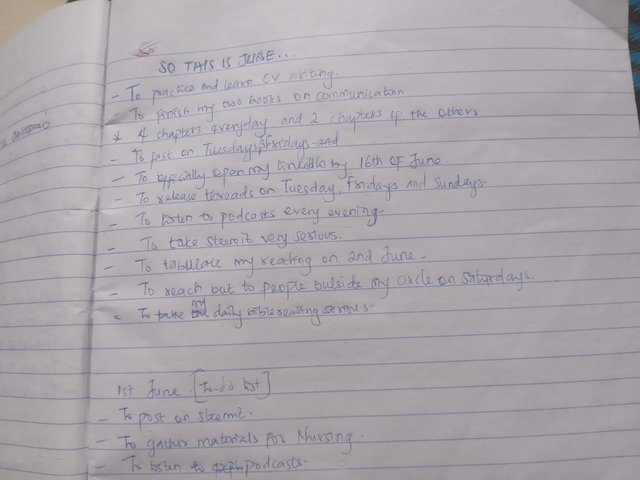 SO THIS IS JUNE...
- To practice and learn CV writing.
To finish my two books on communication
* 4 chapters everyday and 2 chapters of the others
- To post on Tuesdays, Fridays and
- To officially open my LinkedIn by 16th of June.
- To release threads on Tuesday, Fridays and Sundays.
- To listen to podcasts every evening.
- To take steemit very serious.
- To tabulate my reading on 2nd June.
- To reach out to people outside my circle on Saturdays.
- To take my daily bible reading serious.
1st June [To-do list]
- To post on steemit.
- To gather materials for Nursing.
- To listen to podcasts.